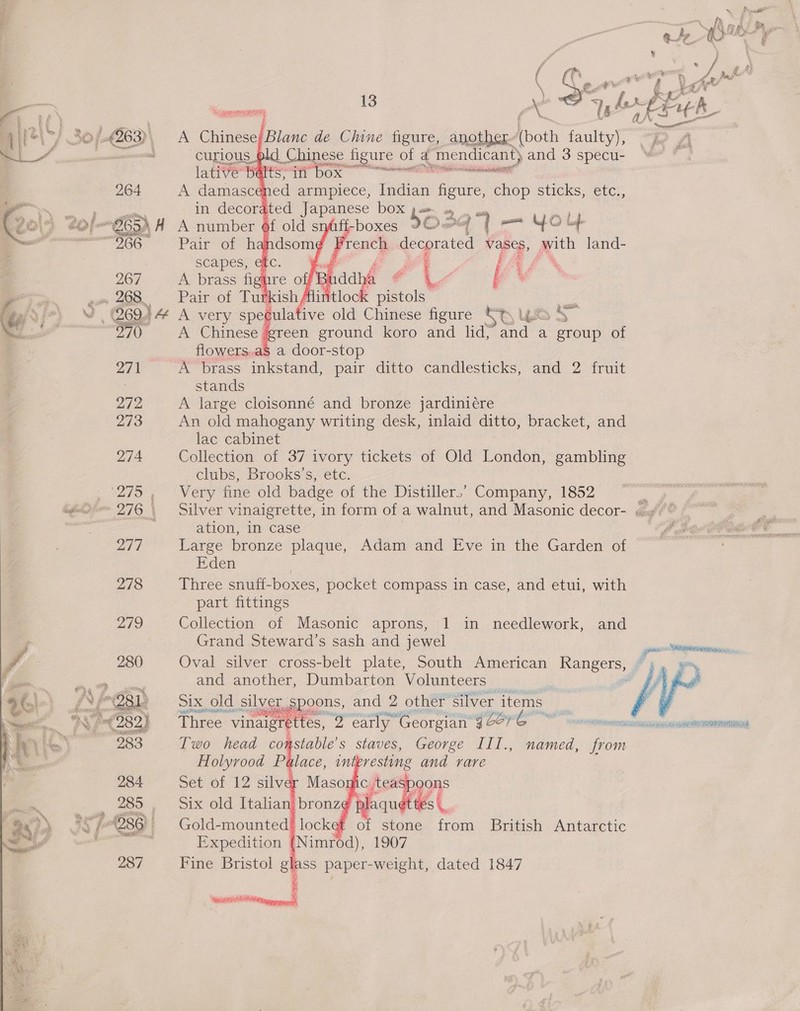 13
263 A Chinese Blanc de Chine figure, another (both faulty),
curious old Chinese figure of a mendicant, and 3 specu-
lative belts, in box
264 A damascened armpiece, Indian figure, chop sticks, etc.,
in decorated Japanese box
265 A number of old snuff-boxes
266 Pair of handsome French decorated vases, with land-
scapes, etc.
267 A brass figure of Buddha
268 Pair of Turkish flintlock pistols
269 A very speculative old Chinese figure
270 A Chinese green ground koro and lid, and a group of
flowers as a door-stop
271 A brass inkstand, pair ditto candlesticks, and 2 fruit
stands
272 A large cloisonné and bronze jardiniére
273 An old mahogany writing desk, inlaid ditto, bracket, and
lac cabinet
274 Collection of 37 ivory tickets of Old London, gambling
clubs, Brooks's, etc.
275 Very fine old badge of the Distillers' Company, 1852
276 Silver vinaigrette, in form of a walnut, and Masonic decor-
ation, in case
277 Large bronze plaque, Adam and Eve in the Garden of
Eden
278 Three snuff-boxes, pocket compass in case, and etui, with
part fittings
279 Collection of Masonic aprons, 1 in needlework, and
Grand Steward's sash and jewel
280 Oval silver cross-belt plate, South American Rangers,
and another, Dumbarton Volunteers
281 Six old silver spoons, and 2 other silver items
282 Three vinaigrettes, 2 early Georgian
283 Two head constable's staves, George III., named, from
Holyrood Palace, interesting and rare
284 Set of 12 silver Masonic teaspoons
285 Six old Italian bronze plaquettes
286 Gold-mounted locket of stone from British Antarctic
Expedition (Nimrod), 1907
287 Fine Bristol glass paper-weight, dated 1847